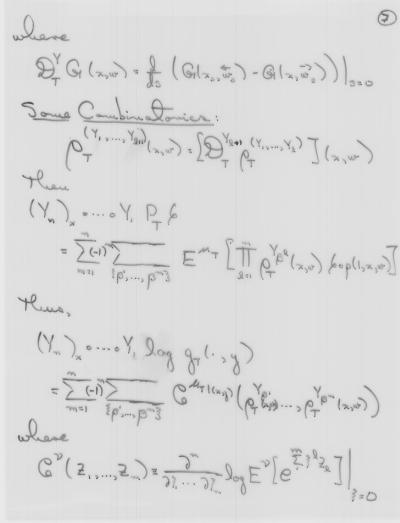 ⑦
where
𝒟_T^Y G(x,w) = d/ds (G(x_s, w⃖_s) - G(x, w⃗_s))|_{s=0}
Some Combinatorics:
ρ_T^{(Y_1,...,Y_{l+1})}(x,w) = [𝒟_T^{Y_{l+1}} ρ_T^{(Y_1,...,Y_l)}](x,w)
Then
(Y_n)_x ∘ ⋯ ∘ Y_1 P_T f
= Σ_{m=1}^{n} (-1)^m Σ_{{β^1,...,β^m}} E^{μ_T} [∏_{l=1}^{m} ρ_T^{Y_{β^l}}(x,w) f∘p(1,x,w)]
Thus,
(Y_n)_x ∘ ⋯ ∘ Y_1 log g_T(·,y)
= Σ_{m=1}^{n} (-1)^m Σ_{{β^1,...,β^m}} C^{μ_T|(x,y)} (ρ_T^{Y_{β^1}}(x,w), ..., ρ_T^{Y_{β^m}}(x,w))
where
C^ν(Z_1,...,Z_m) = ∂^m/∂ξ_1 ⋯ ∂ξ_m log E^ν [e^{Σ_1^m ξ_l Z_l}]|_{ξ=0}